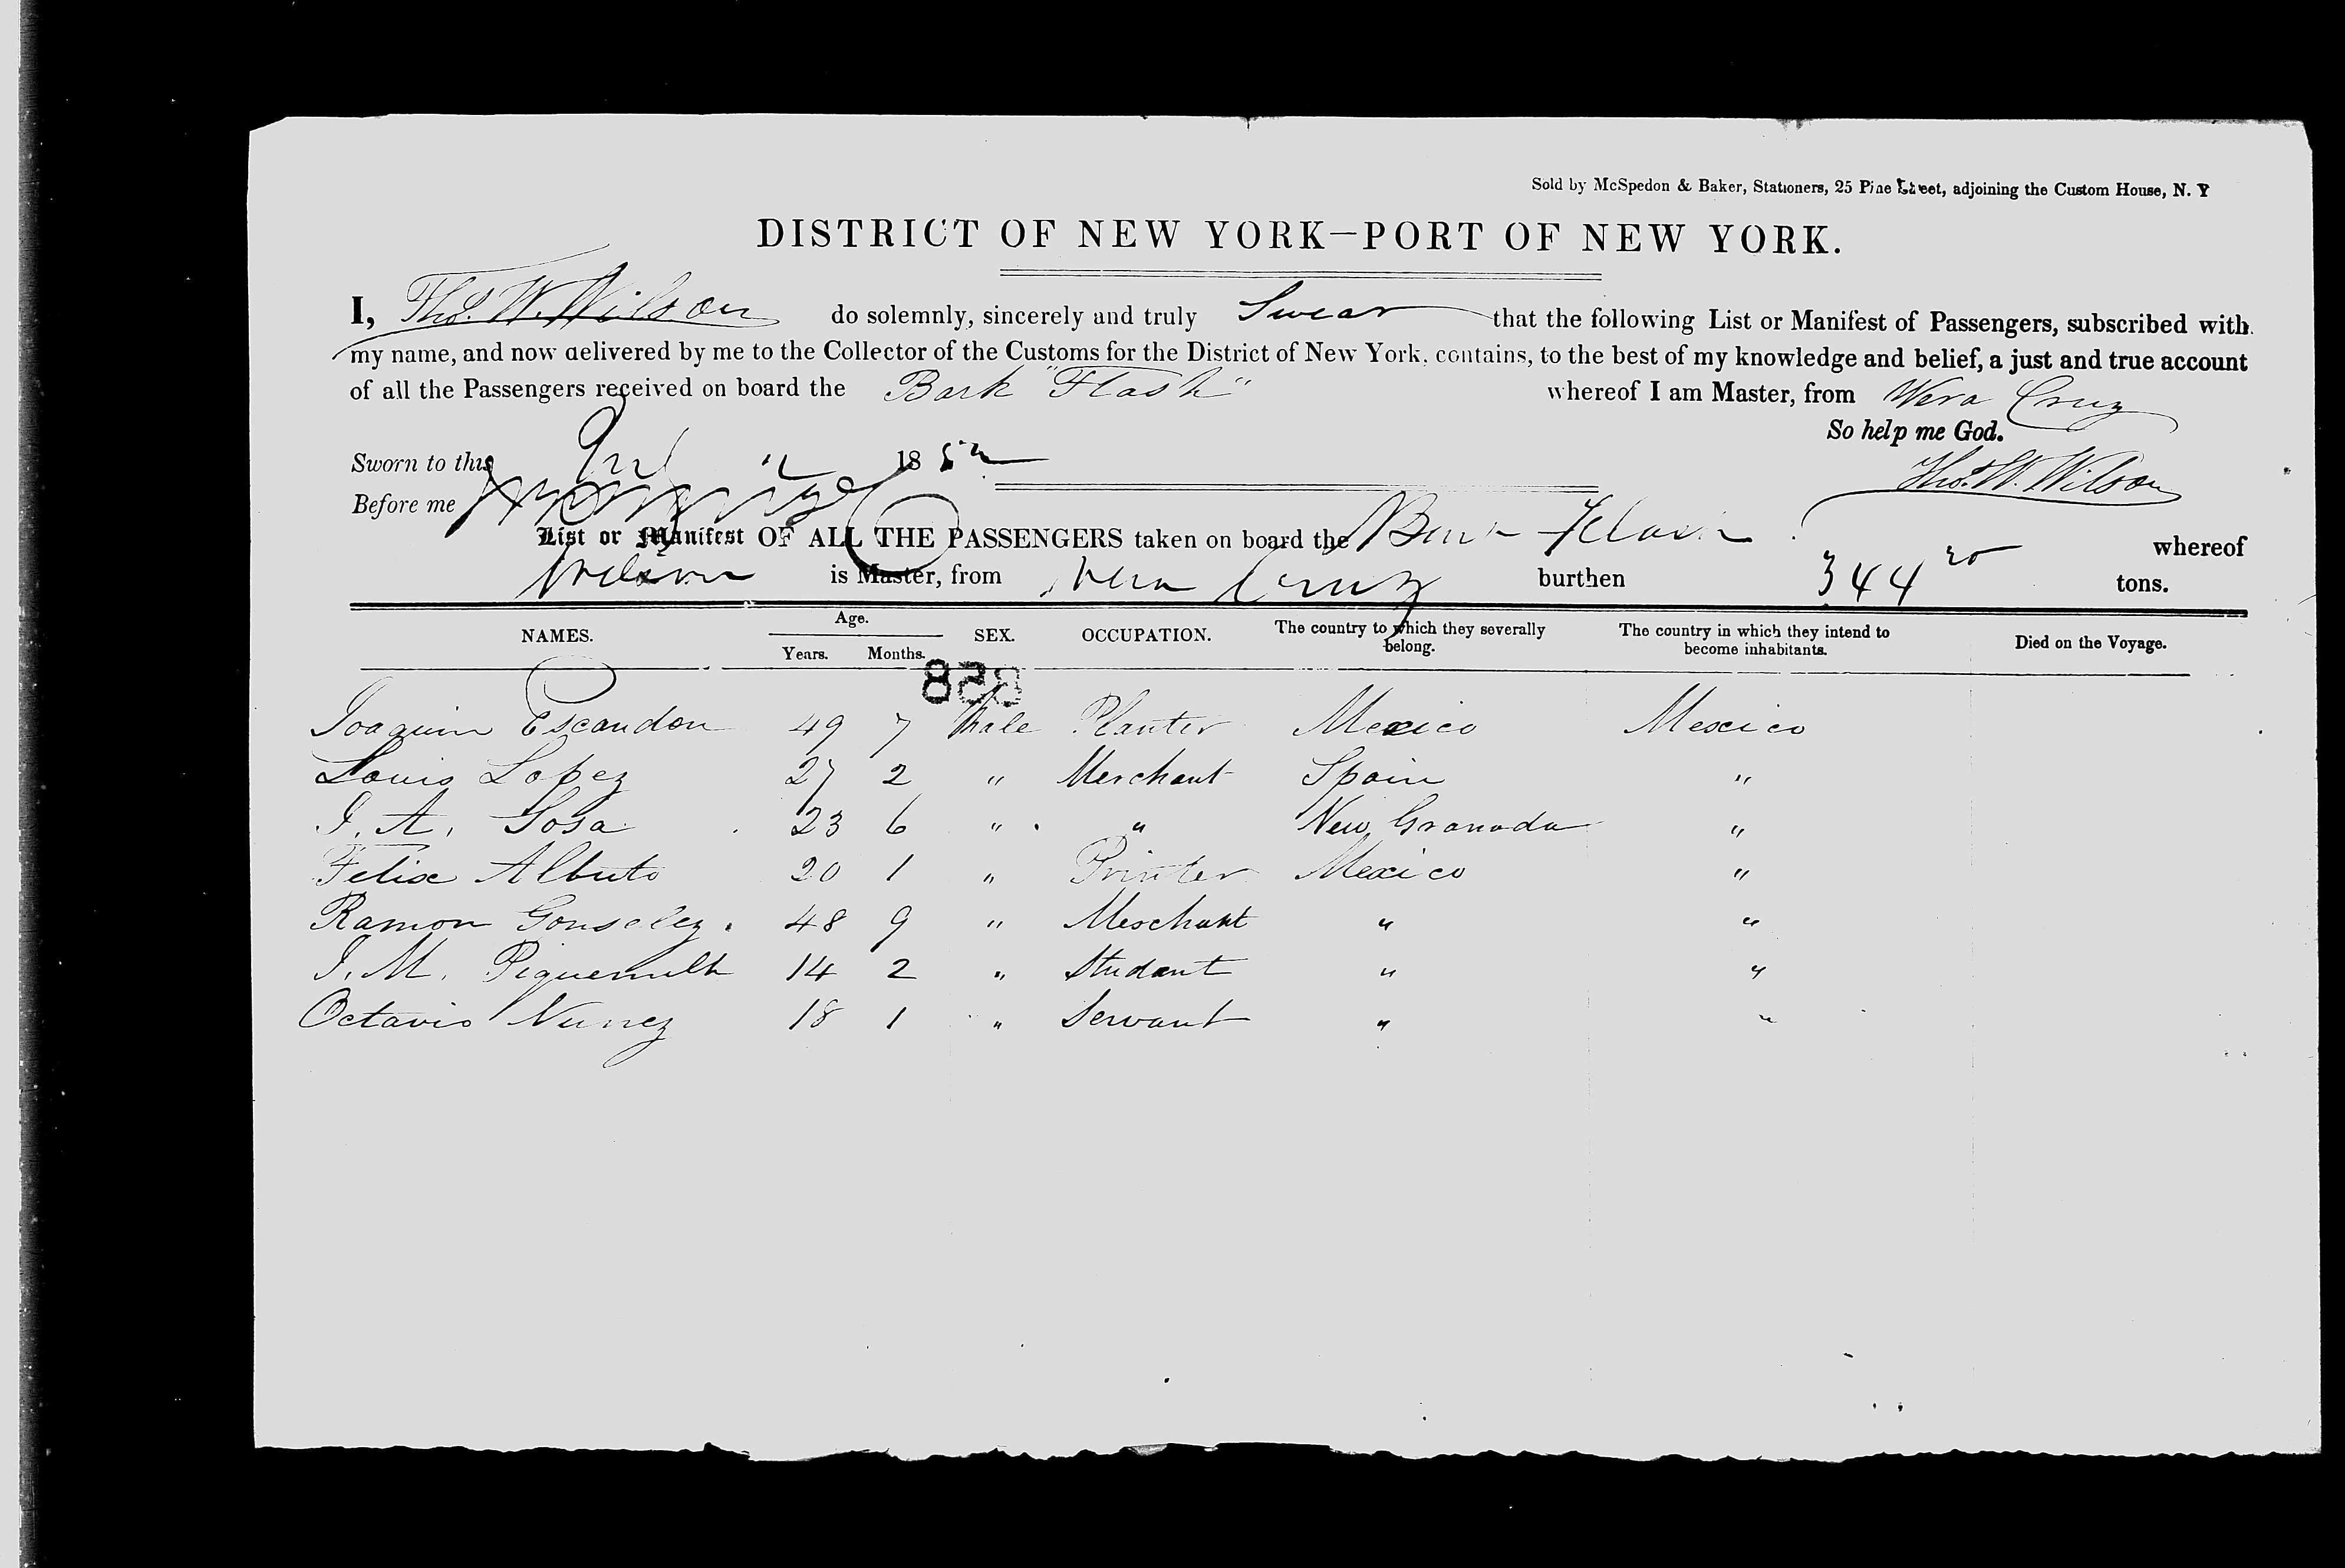 Sold by McSpedon & Baker, Stationers, 25 Pine Street, adjoining the Custom House, N. Y
DISTRICT OF NEW YORK—PORT OF NEW YORK.
I, Thos. W. Wilson do solemnly, sincerely and truly Swear that the following List or Manifest of Passengers, subscribed with
my name, and now delivered by me to the Collector of the Customs for the District of New York, contains, to the best of my knowledge and belief, a just and true account
of all the Passengers received on board the Bark "Flash" whereof I am Master, from Vera Cruz
So help me God.
Sworn to this 1852
Thos. W. Wilson
Before me
List or Manifest OF ALL THE PASSENGERS taken on board the Bark Flash whereof
Wilson is Master, from Vera Cruz burthen 344 20 tons.
NAMES. Age. Years. Months. SEX. OCCUPATION. The country to which they severally belong. The country in which they intend to become inhabitants. Died on the Voyage.
858
Joaquin Escandon 49 7 Male Planter Mexico Mexico
Louis Lopez 27 2 " Merchant Spain "
J. A. Sosa 23 6 " " New Granada "
Felix Albuto 20 1 " Printer Mexico "
Ramon Gonselez. 48 9 " Merchant " "
J. M. 14 2 " Student " "
Octavio Nunez 18 1 " Servant " "